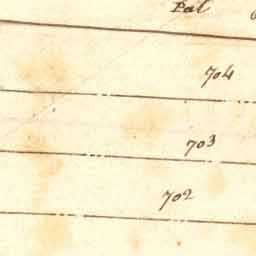 Pal
704
703
702